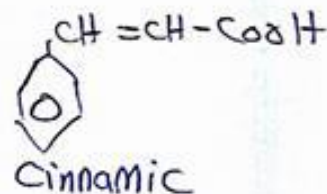 CH=CH-CooH
Cinnamic